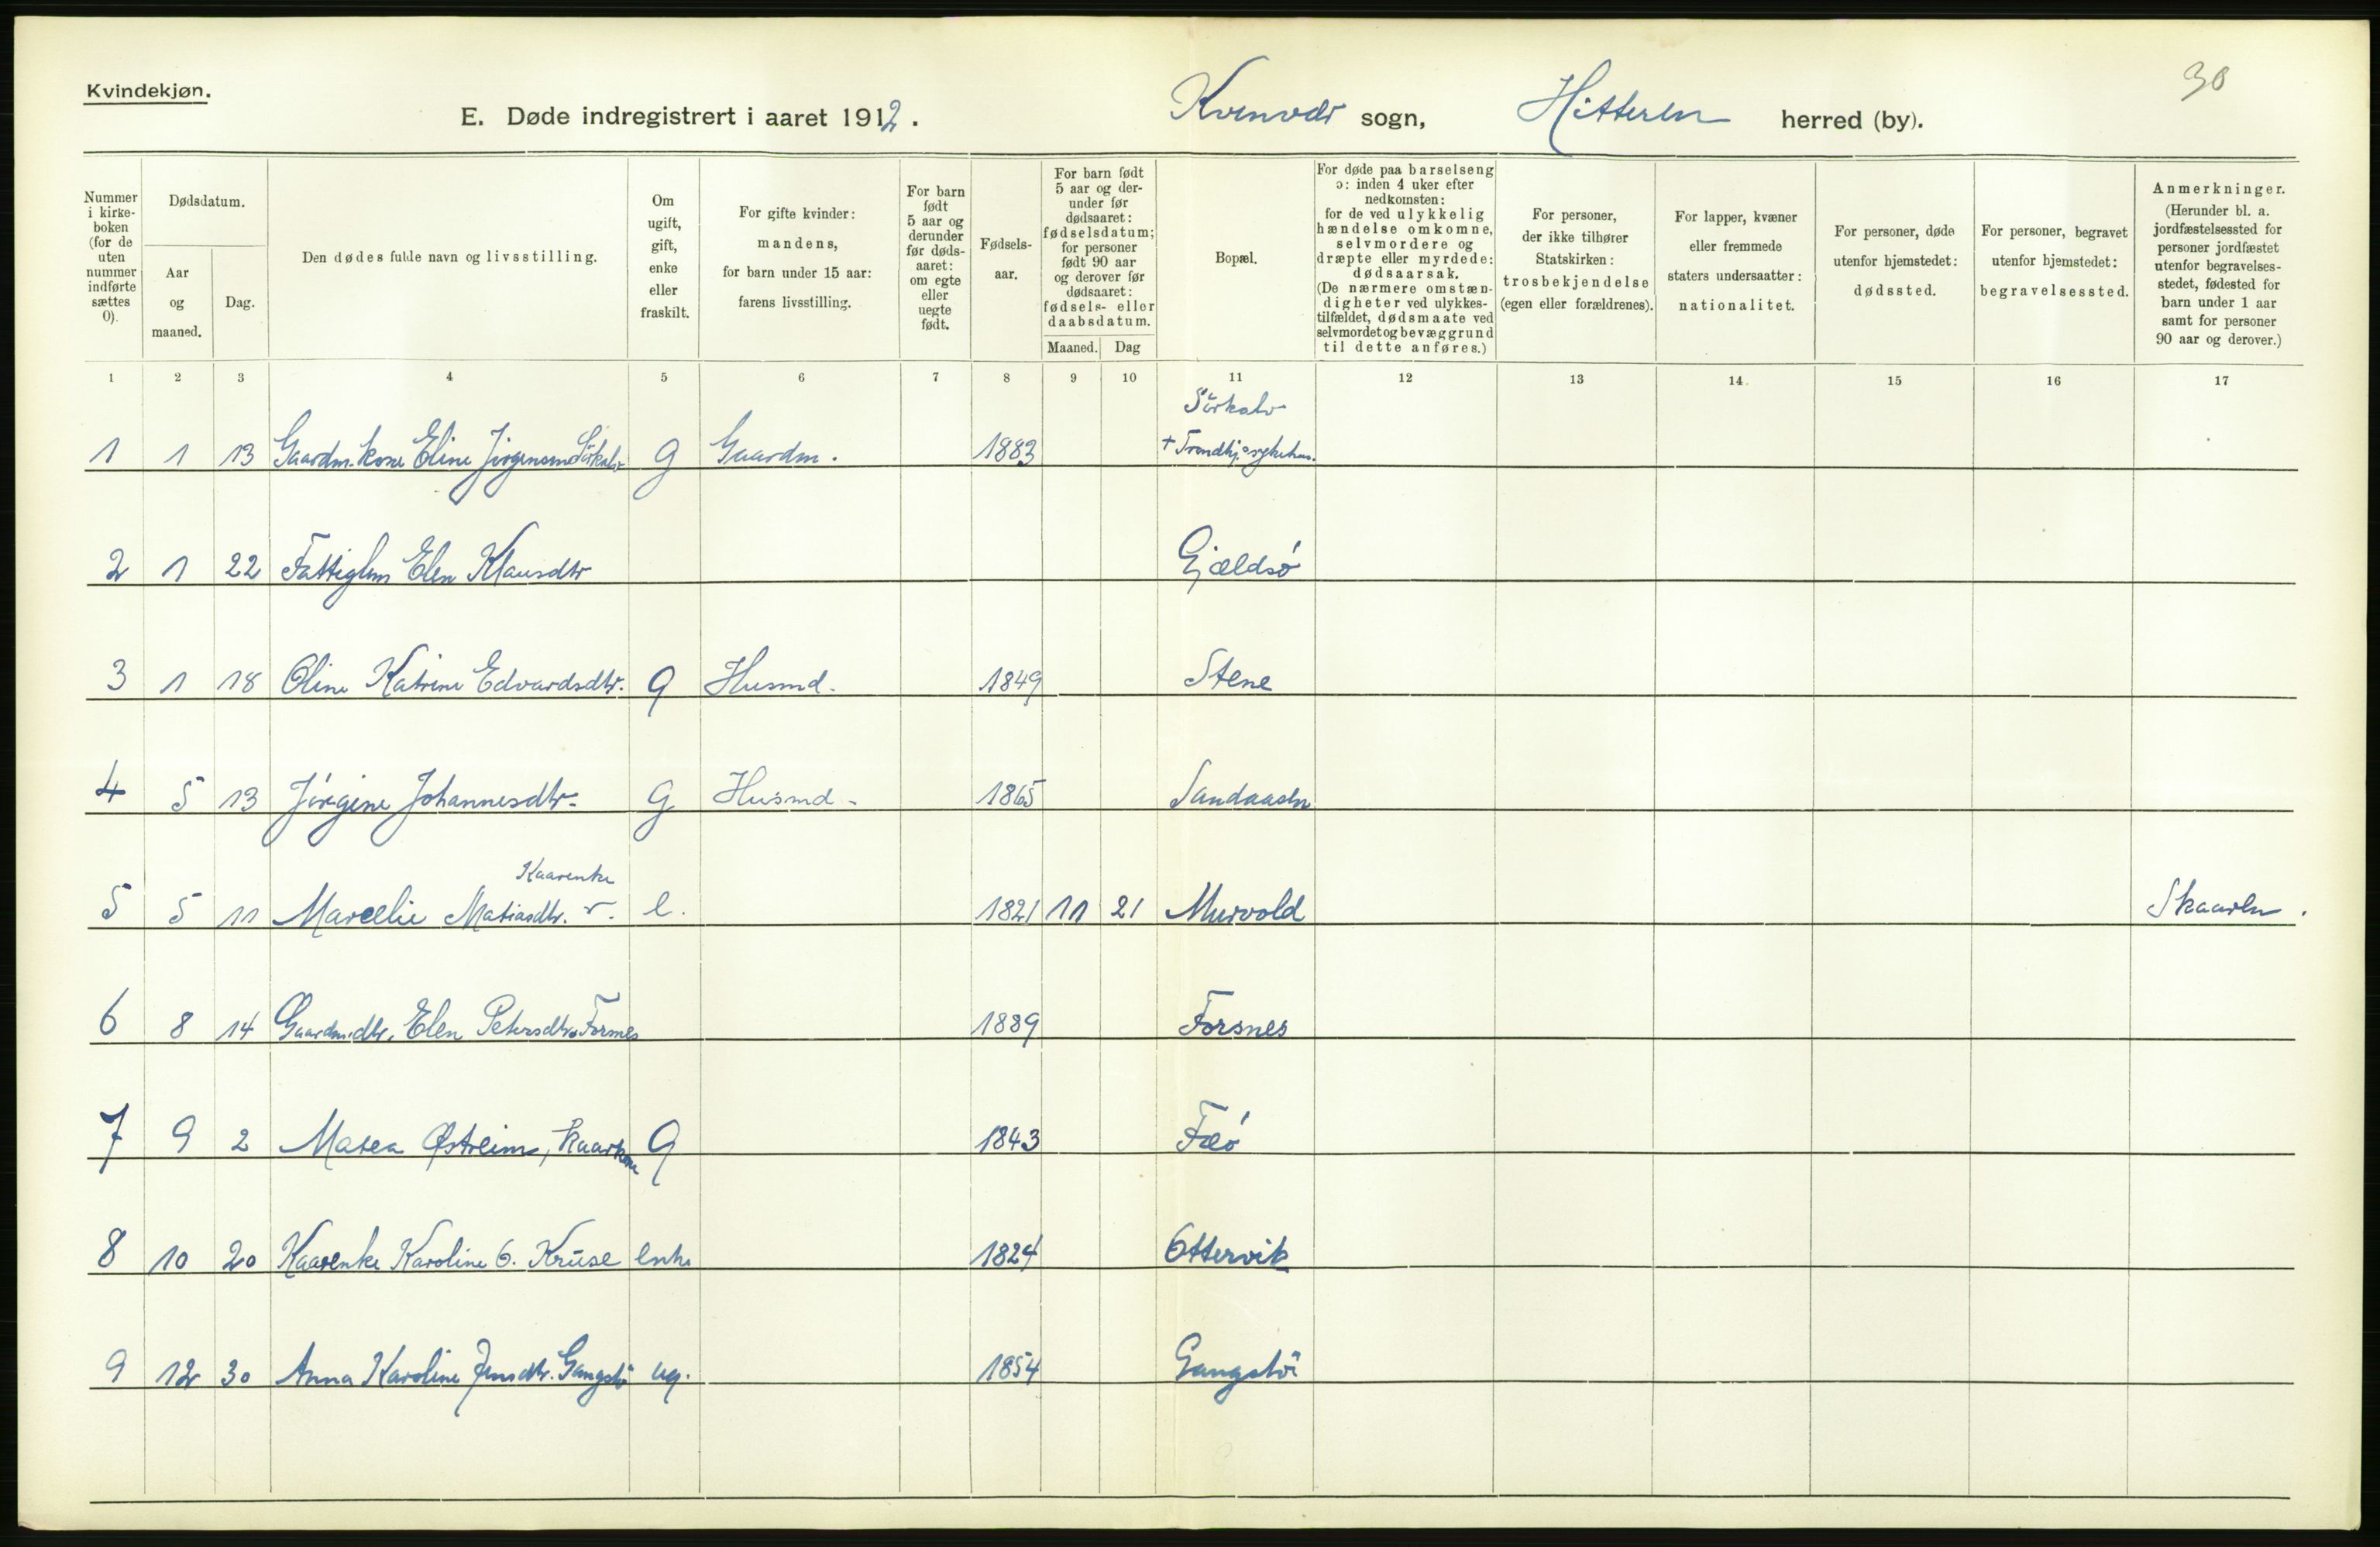 Kvindekjøn.
30
E. Døde indregistrert i aaret 1912. Kvenvær sogn, Hitteren herred (by).
Nummer i kirkeboken (for de uten nummer indførte sættes 0).
Dødsdatum.
Aar og maaned.
Dag.
Den dødes fulde navn og livsstilling.
Om ugift, gift, enke eller fraskilt.
For gifte kvinder: mandens, for barn under 15 aar: farens livsstilling.
For barn født 5 aar og derunder før dødsaaret: om egte eller uegte født.
Fødselsaar.
For barn født 5 aar og derunder før dødsaaret: fødselsdatum; for personer født 90 aar og derover før dødsaaret: fødsels- eller daabsdatum.
Maaned. Dag
Bopæl.
For døde paa barselseng ɔ: inden 4 uker efter nedkomsten: for de ved ulykkelig hændelse omkomne, selvmordere og dræpte eller myrdede: dødsaarsak. (De nærmere omstændigheter ved ulykkestilfældet, dødsmaate ved selvmordet og bevæggrund til dette anføres.)
For personer, der ikke tilhører Statskirken: trosbekjendelse (egen eller forældrenes).
For lapper, kvæner eller fremmede staters undersaatter: nationalitet.
For personer, døde utenfor hjemstedet: dødssted.
For personer, begravet utenfor hjemstedet: begravelsessted.
Anmerkninger. (Herunder bl. a. jordfæstelsessted for personer jordfæstet utenfor begravelsesstedet, fødested for barn under 1 aar samt for personer 90 aar og derover.)
1 2 3 4 5 6 7 8 9 10 11 12 13 14. 15 16 17
Sörkalv
1 1 13 Gaardm. kone Eline Jörgensen Sörkalv g Gaardm. 1883 + Trondhj. sykehus.
2 1 22 Fattiglem Elen Klausdtr Gjældsö
3 1 18 Oline Katrine Edvardsdtr. g Husmd. 1849 Stene
4 5 13 Jörgine Johannesdtr. g Husmd. 1865 Sandaasen
Kaarenke
5 5 11 Marcelie Matiasdtr. e. 1821 11 21 Murvold Skaaren.
6 8 14 Gaardm.dtr. Elen Petersdtr. Forsnes 1889 Forsnes
7 9 2 Masea Østreim, kaarkone g 1843 Fæö
8 10 20 Kaarenke Karoline O. Kruse enke 1824 Ottervik
9 12 30 Anna Karoline Jensdtr. Gangstö ug. 1854 Gangstö